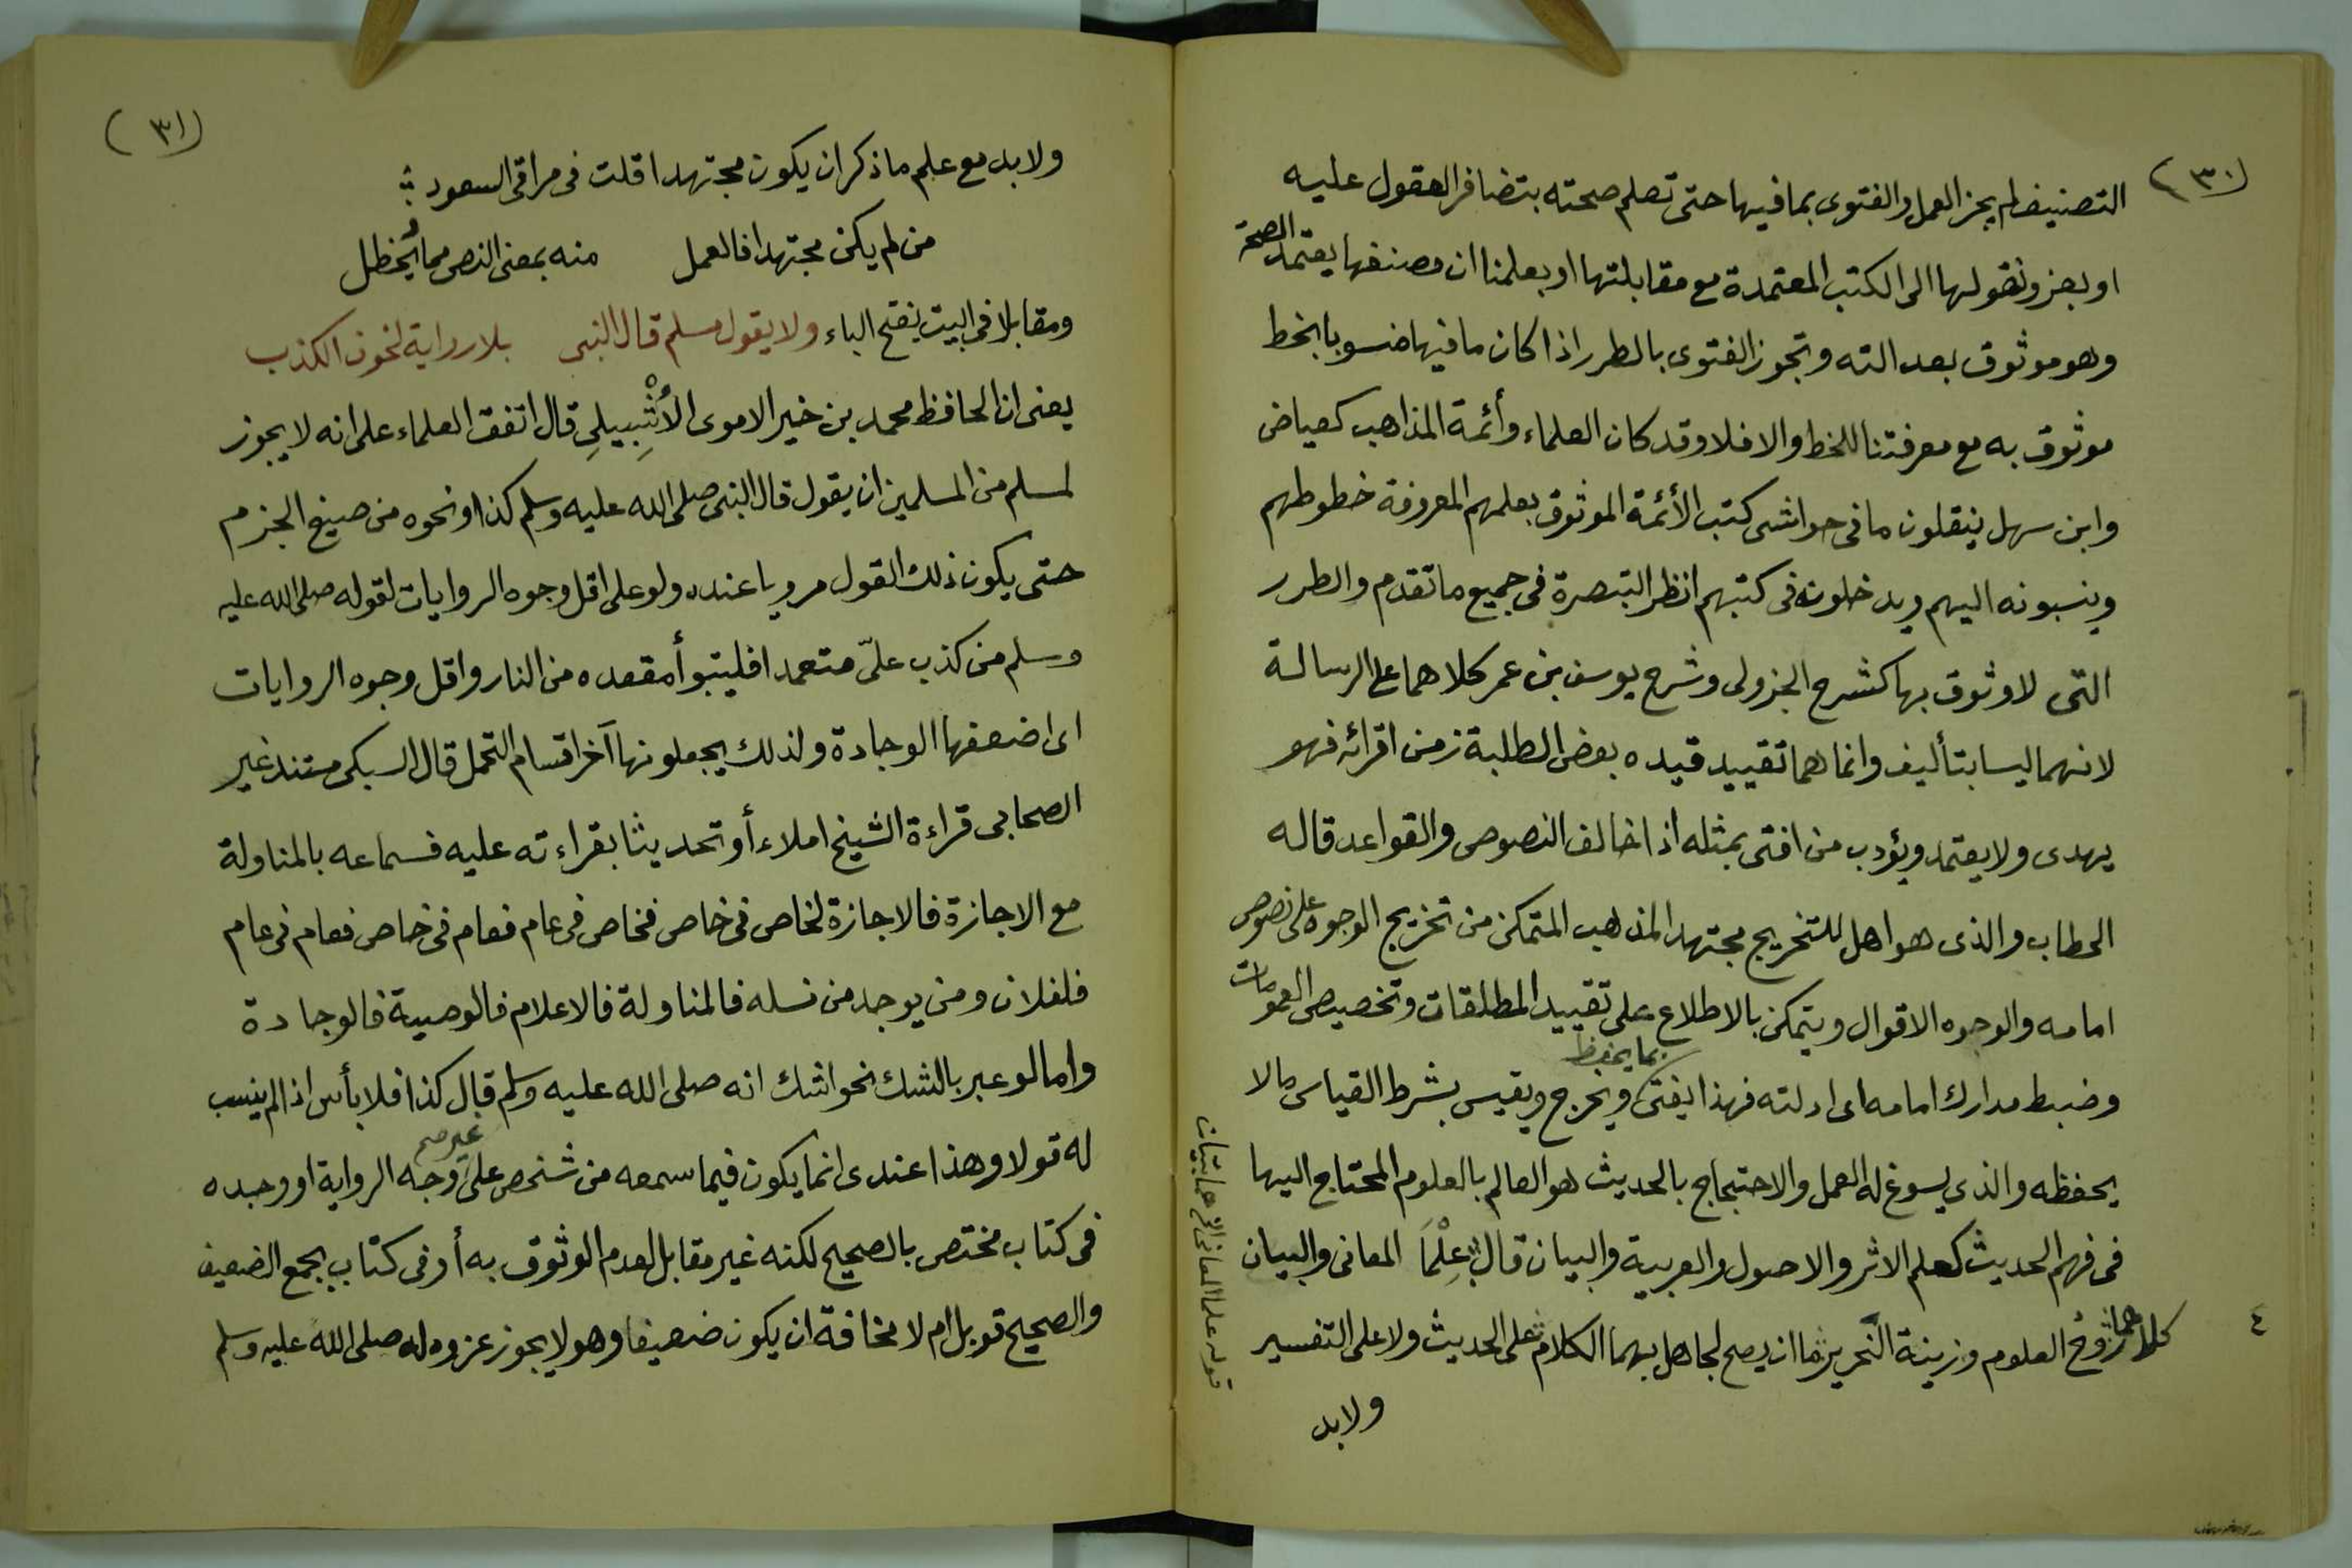 (٣٠)
التصنيف لم يجز العمل والفتوى بما فيها حتى تعلم صحته بتضافر العقول عليه
او بعزو نقولها الى الكتب المعتمدة مع مقابلتها او بعلمنا ان مصنفها يعتمد الصحة
وهو موثوق بعدالته وتجوز الفتوى بالطرر اذا كان ما فيها منسوبا بالخط
موثوق به مع معرفتنا للخط والا فلا وقد كان العلماء وأئمة المذاهب كعياض
وابن سهل ينقلون ما فى حواشى كتب الأئمة الموثوق بعلمهم المعروفة خطوطهم
وينسبونه اليهم ويدخلونه فى كتبهم انظر التبصرة فى جميع ما تقدم والطرر
التى لا وثوق بها كشرح الجزولى وشرح يوسف بن عمر كلاهما على الرسالة
لانهما ليسا بتأليف وانما هما تقييد قيده بعض الطلبة زمن اقرائه فهو
يهدى ولا يعتمد ويؤدب من افتى بمثله اذا خالف النصوص والقواعد قاله
الحطاب والذى هو اهل للتخريج مجتهد المذهب المتمكن من تخريج الوجوه على نصوص
امامه والوجوه الاقوال ويتمكن بالاطلاع على تقييد المطلقات وتخصيص العمومات
وضبط مدارك امامه اى ادلته فهذا يفتى بما يحفظ ويخرج ويقيس بشرط القياس ما لا
يحفظه والذى يسوغ له العمل والاحتجاج بالحديث هو العالم بالعلوم المحتاج اليها
فى فهم الحديث كعلم الاثر والاصول والعربية والبيان قال عِلْمَا المعانى والبيان
كلاهما رُوحُ العلوم وزينة النحرير ما ان يصح لجاهل بهما الكلام على الحديث ولا على التفسير
ولابد
قوله علما المعانى الخ هما بيتان
٤
(٣١)
ولا بد مع علم ما ذكر ان يكون مجتهدا قلت فى مراقى السعود :
من لم يكن مجتهدا فالعمل منه بمعنى النص مما يُحظل
ومقابلا فى البيت بفتح الباء ولا يقول مسلم قال النبى بلا رواية لخوف الكذب
يعنى ان الحافظ محمد بن خير الاموى الأشْبِيلِي قال اتفق العلماء على انه لا يجوز
لمسلم من المسلمين ان يقول قال النبى صلى الله عليه وسلم كذا ونحوه من صيغ الجزم
حتى يكون ذلك القول مرويا عنده ولو على اقل وجوه الروايات لقوله صلى الله عليه
وسلم من كذب علىّ متعمدا فليتبوأ مقعده من النار واقل وجوه الروايات
اى اضعفها الوجادة ولذلك يجعلونها آخر اقسام التحمل قال السبكى مستند غير
الصحابى قراءة الشيخ املاء أو تحديثا بقراءته عليه فسماعه بالمناولة
مع الاجازة فالاجازة لخاص فى خاص فخاص فى عام فعام فى خاص فعام فى عام
فلفلان ومن يوجد من نسله فالمناولة فالاعلام فالوصية فالوجادة
واما لو عبر بالشك نحو اشك انه صلى الله عليه وسلم قال كذا فلا بأس اذا لم ينسب
له قولا وهذا عندى انما يكون فيما سمعه من شخص على غير وجه الرواية او وجده
فى كتاب مختص بالصحيح لكنه غير مقابل لعدم الوثوق به أو فى كتاب يجمع الضعيف
والصحيح قوبل ام لا مخافة ان يكون ضعيفا وهو لا يجوز عزوه له صلى الله عليه وسلم